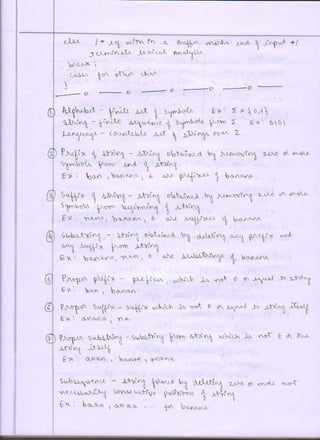 else /* eof within a buffer marks end of input */
terminate lexical analysis
break ;
cases for other char
}
① Alphabet - finite set of symbols Ex: Σ = {0,1}
String - finite sequence of symbols from Σ Ex: 0101
Language - countable set of strings over Σ
② Prefix of string - string obtained by removing zero or more
symbols from end of string
Ex: ban, banana, ε are prefixes of banana.
③ Suffix of string - string obtained by removing zero or more
symbols from beginning of string
Ex: nana, banana, ε are suffixes of banana
④ Substring - string obtained by deleting any prefix and
any suffix from string
Ex: banana, nan, ε are substrings of banana
⑤ Proper prefix - prefixes, which is not ε or equal to string
Ex: ban, banan
⑥ Proper suffix - suffix which is not ε or equal to string itself
Ex: anana, na
⑦ Proper substring - substring from string which is not ε or the
string itself
Ex: anan, banan, anana
Subsequence - string formed by deleting zero or more not
necessarily consecutive positions of string
Ex: baan, anaa -- for banana